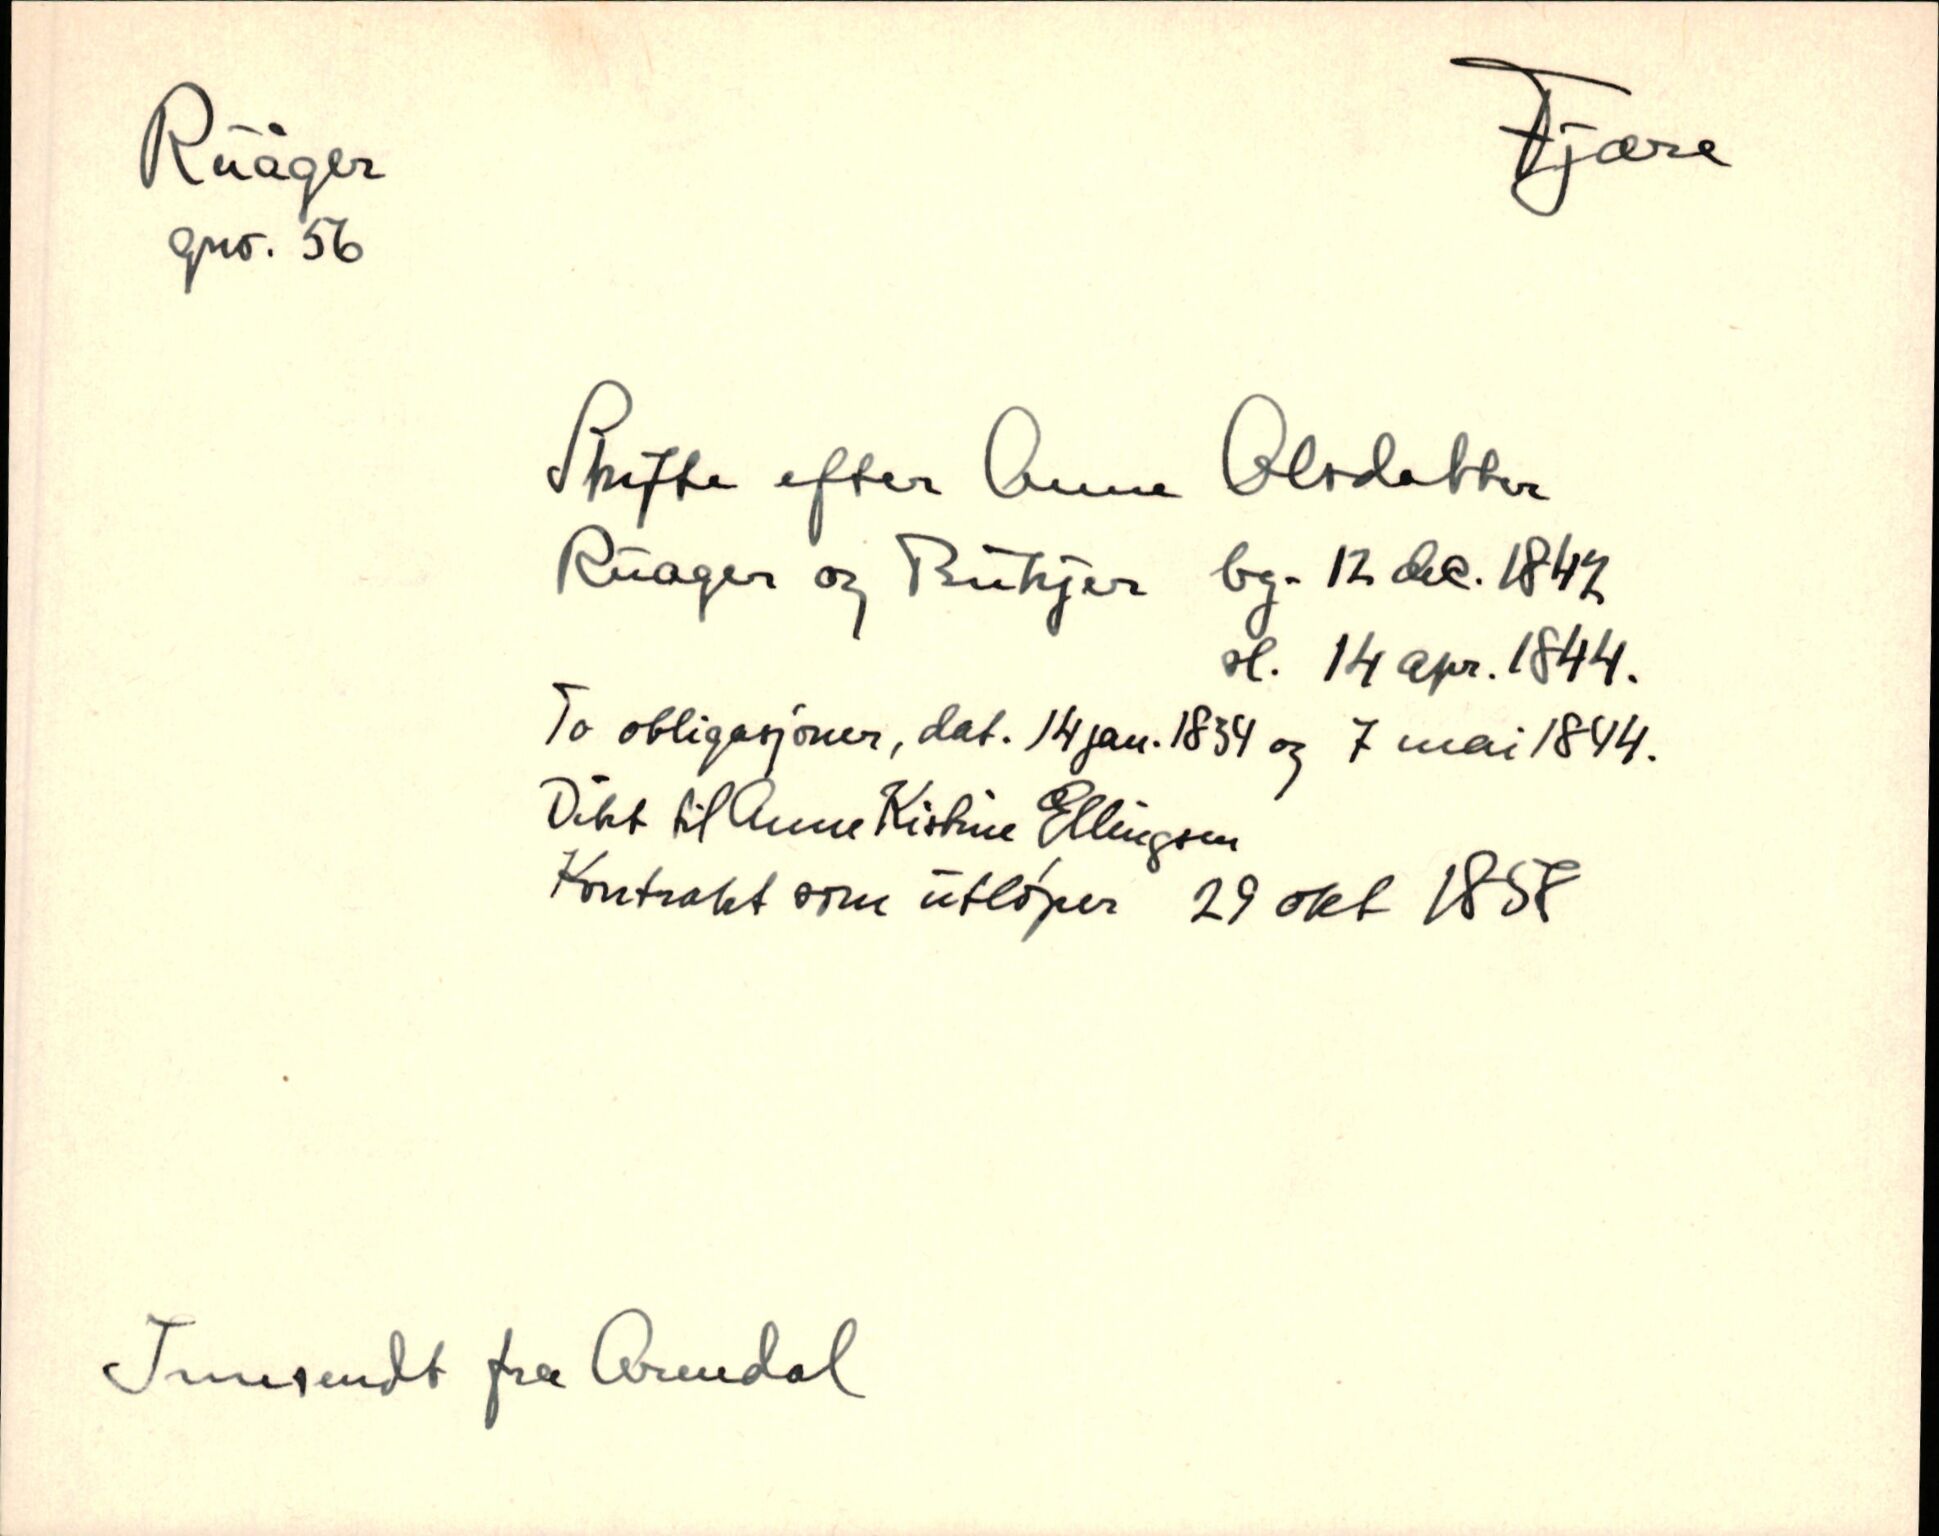 Ruåger
gno. 56
Fjære
Skifte efter Anne Olsdatter
Ruager og Rukjer bg. 12 dec. 1842
sl. 14 apr. 1844.
To obligasjoner, dat. 14 jan. 1834 og 7 mai 1844.
Dikt til Anne Kistine Ellingsen
Kontrakt som utløper 29 okt 1858
Innsendt fra Arendal